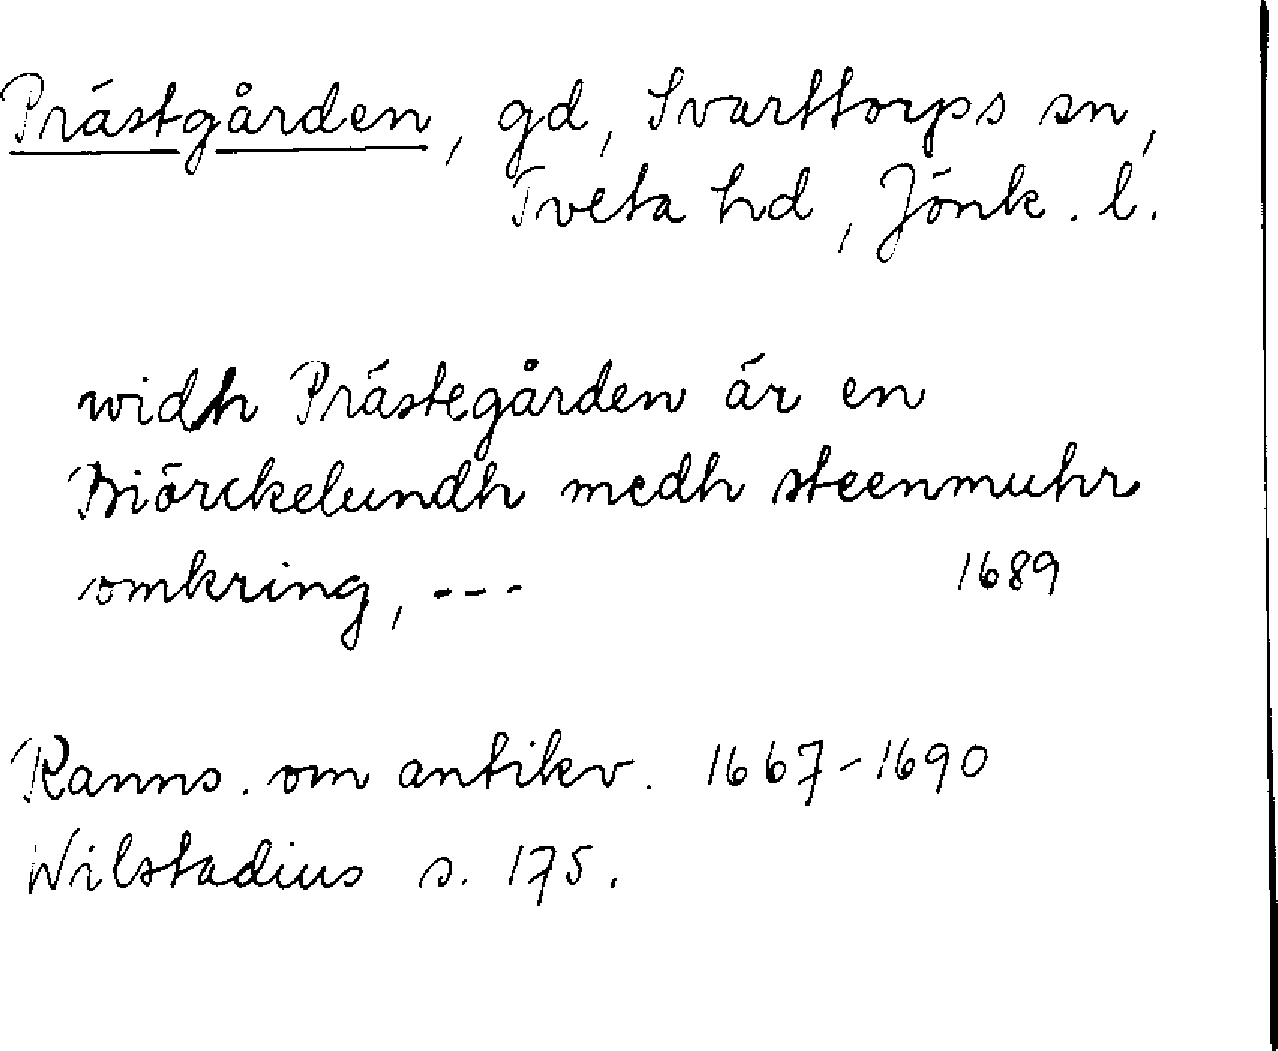 Prästgården, gd, Svarttorps sn,
Tveta hd, Jönk. l.
widh Prästegården är en
Biörckelundh medh steenmuhr
omkring, ---
1689
Ranns. om antikv. 1667-1690
Wilstadius s. 175.